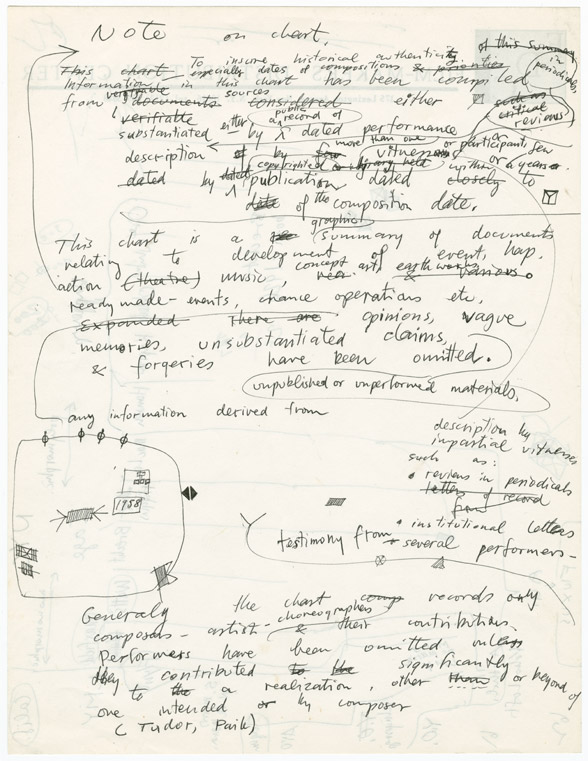 Note on chart.
of this summary
in periodicals,
To insure historical authenticity
This chart especially dates of compositions & priorities
Information in this chart has been compiled
verifiable sources
from documents considered either
such as
critical
reviews
verifiable
public
substantiated either by a record of dated performance
or
more than one or participant, few
description of by few witnesses or a year
copyrighted or library held within
dated by dated publication dated closely to
date of the composition date.
graphic
This chart is a summary of documents
relating to development of event, hap.
concept art, earthworks,
action (theatre) music, & various.
ready made - events, chance operations etc.
Expounded There are opinions, vague
memories, unsubstantiated claims,
& forgeries have been omitted.
unpublished or unperformed materials,
any information derived from
description by
impartial witnesses
such as:
reviews in periodicals
letters of record
from
1958
institutional letters
testimony from several performers -
Generaly the chart comp records only
choreographers
composers - artist - & their contribution.
Performers have been omitted unless
they contributed to the significantly
to the a realization, other than or beyond of
one intended or by composer
(Tudor, Paik)